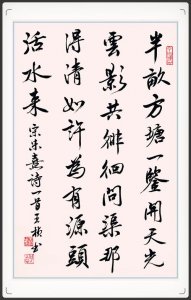 半畝方塘一鑒開天光
雲影共徘徊問渠那
得清如許為有源頭
活水来
宋朱熹詩一首王书